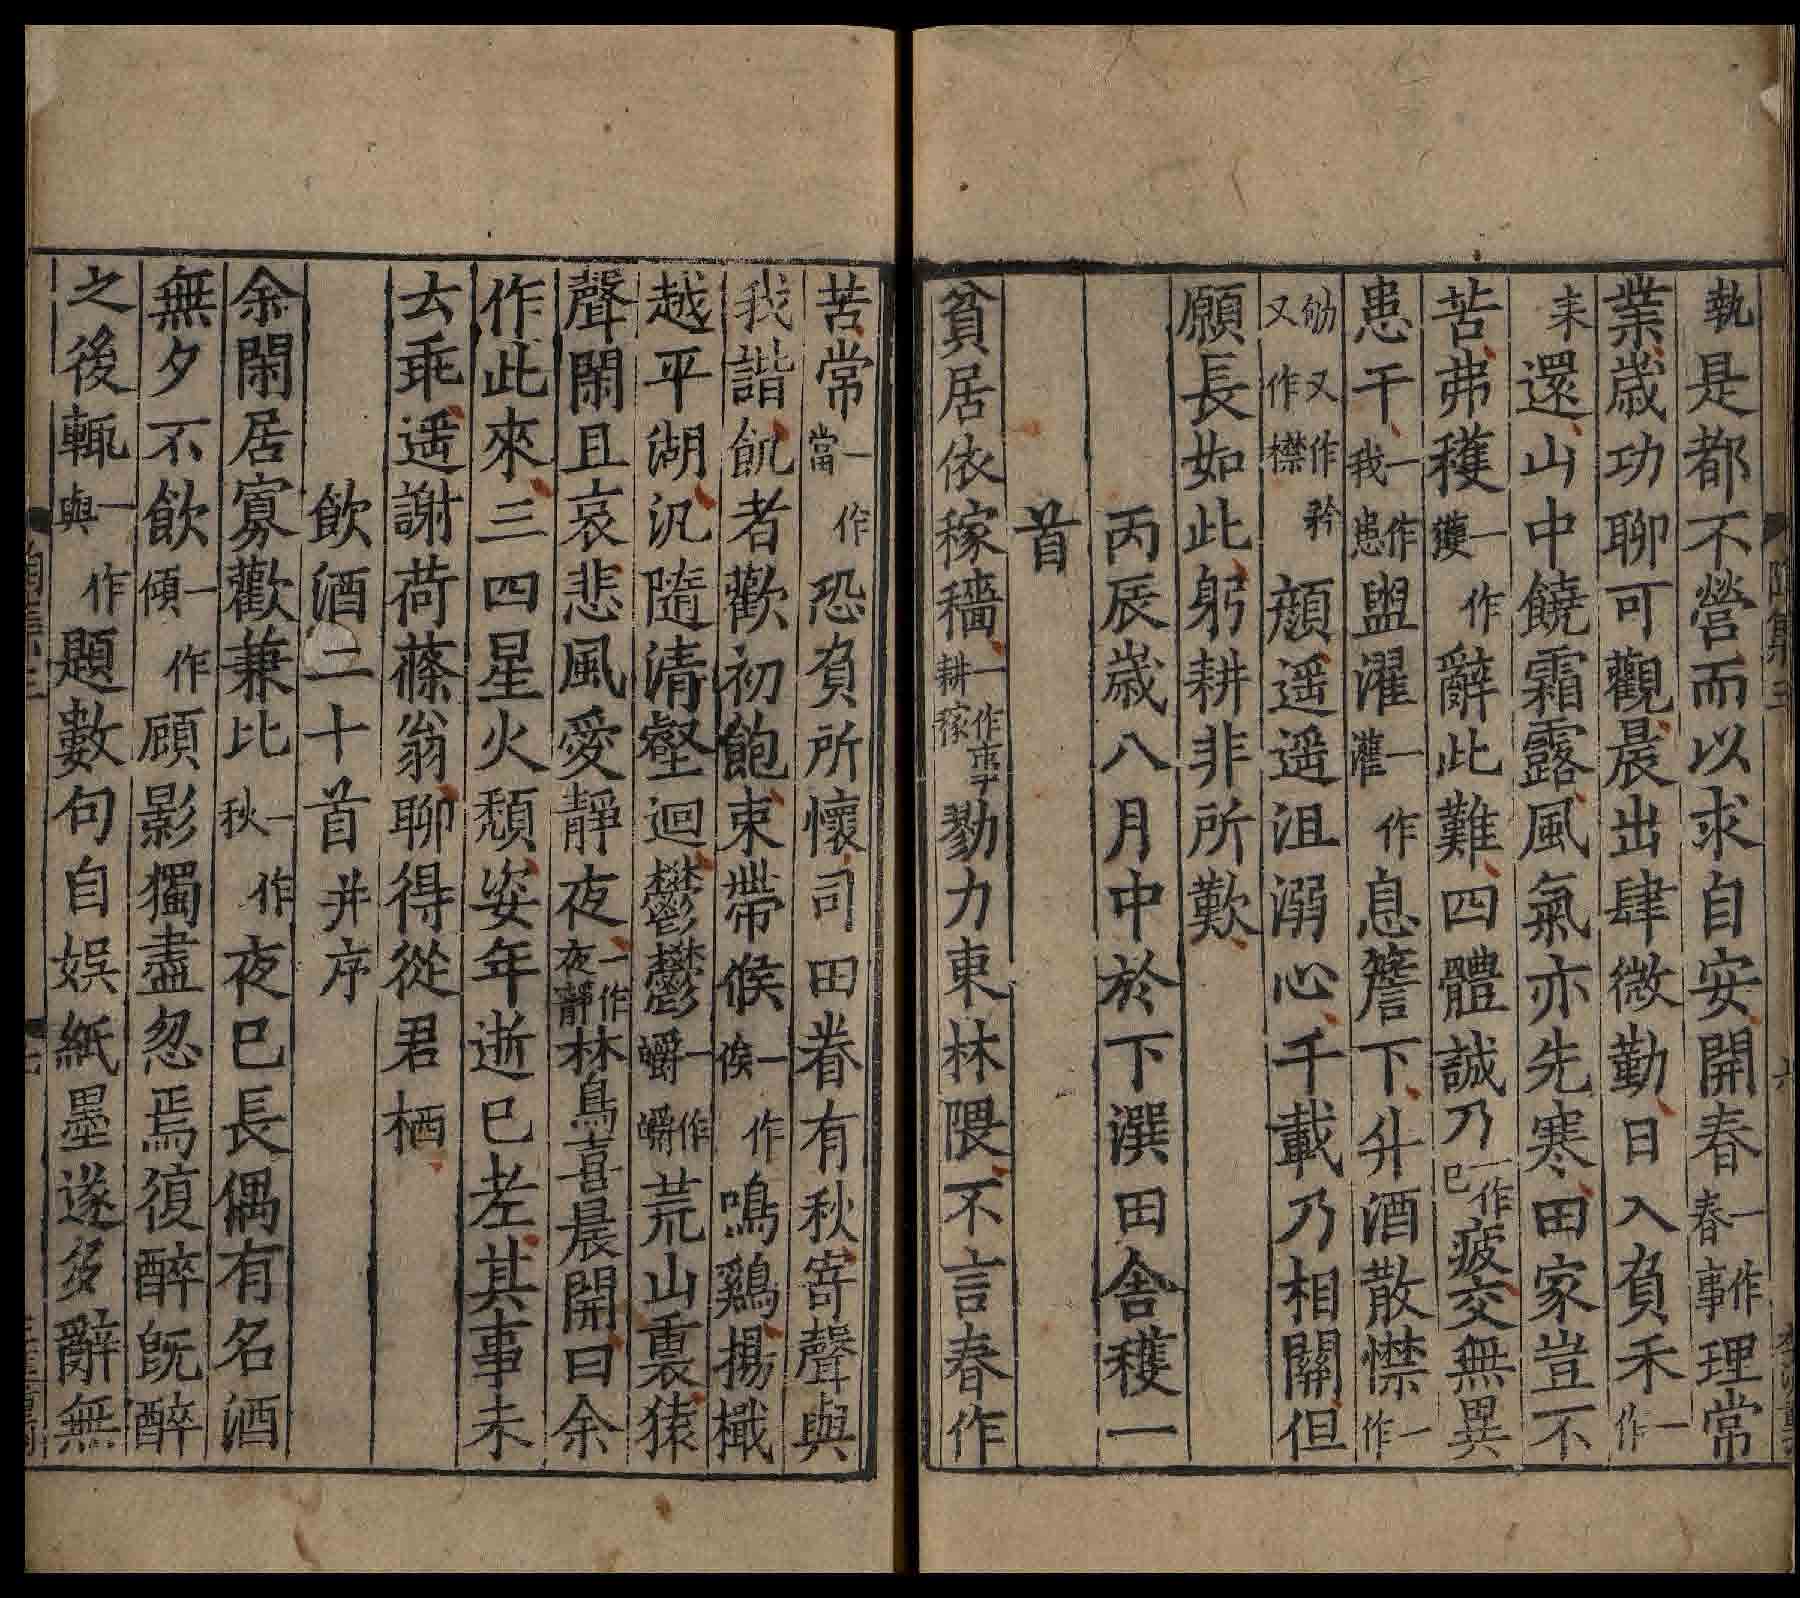 孰是都不營而以求自安開春一作春事理常
業歲功聊可觀晨出肆微勤日入負禾一作
耒還山中饒霜露風氣亦先寒田家豈不
苦弗穫一作獲辭此難四體誠乃一作已疲交無異
患干一作我患盥濯一作灌息簷下升酒散襟一作
劬又作矜又作襟顏遥遥沮溺心千載乃相關但
願長如此躬耕非所歎
丙辰歲八月中於下潠田舍穫一
首
貧居依稼穡一作事耕稼勠力東林隈不言春作
苦常一作當恐負所懷司田眷有秋寄聲與
我諧飢者歡初飽束帶候一作俟鳴鷄揚檝
越平湖汎隨清壑迴鬱鬱一作嚼嚼荒山裏猿
聲閑且哀悲風愛靜夜一作夜靜林鳥喜晨開曰余
作此來三四星火頹姿年逝已老其事未
去乖遥謝荷蓧翁聊得從君栖
飲酒二十首并序
余閑居寡歡兼比一作秋夜已長偶有名酒
無夕不飲一作傾顧影獨盡忽焉復醉旣醉
之後輒一作與題數句自娱紙墨遂多辭無